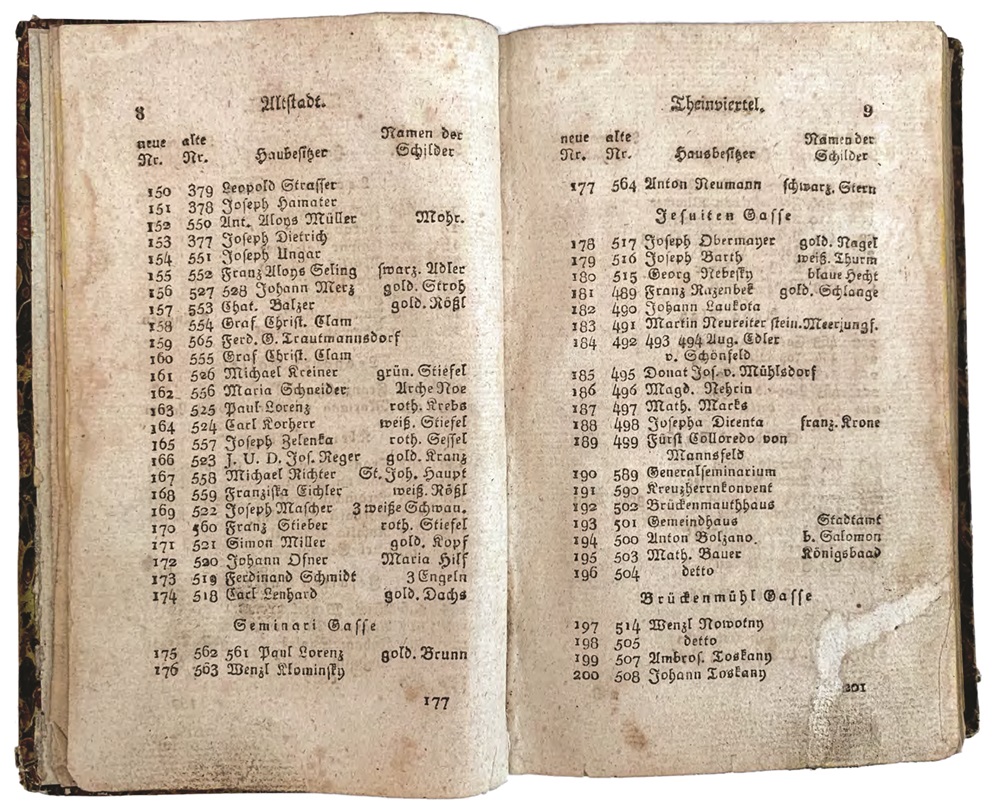 8 Altstadt.
neue alte Namen der
Nr. Nr. Haubesitzer Schilder
150 379 Leopold Strasser
151 378 Joseph Hamater
152 550 Ant. Aloys Müller Mohr.
153 377 Joseph Dietrich
154 551 Joseph Ungar
155 552 Franz Aloys Seling swarz. Adler
156 527 528 Johann Merz gold. Stroh
157 553 Chat. Balzer gold. Rößl
158 554 Graf Christ. Clam
159 565 Ferd. G. Trautmannsdorf
160 555 Graf Christ. Clam
161 526 Michael Kreiner grün. Stiefel
162 556 Maria Schneider Arche Noe
163 525 Paul Lorenz roth. Krebs
164 524 Carl Korherr weiß. Stiefel
165 557 Joseph Zelenka roth. Sessel
166 523 J. U. D. Jos. Reger gold. Kranz
167 558 Michael Richter St. Joh. Haupt
168 559 Franziska Eichler weiß. Rößl
169 522 Joseph Mascher 3 weiße Schwan.
170 560 Franz Stieber roth. Stiefel
171 521 Simon Miller gold. Kopf
172 520 Johann Ofner Maria Hilf
173 519 Ferdinand Schmidt 3 Engeln
174 518 Carl Lenhard gold. Dachs
Seminari Gasse
175 562 561 Paul Lorenz gold. Brunn
176 563 Wenzl Klominsky
177
Theinviertel. 9
neue alte Namen der
Nr. Nr. Hausbesitzer Schilder
177 564 Anton Neumann schwarz. Stern
Jesuiten Gasse
178 517 Joseph Obermayer gold. Nagel
179 516 Joseph Barth weiß. Thurm
180 515 Georg Nebesky blaue Hecht
181 489 Franz Razenbek gold. Schlange
182 490 Johann Laukota
183 491 Martin Neureiter stein. Meerjungf.
184 492 493 494 Aug. Edler
v. Schönfeld
185 495 Donat Jos. v. Mühlsdorf
186 496 Magd. Nehrin
187 497 Math. Marks
188 498 Josepha Ditenta franz. Krone
189 499 Fürst Colloredo von
Mannsfeld
190 589 Generalseminarium
191 590 Kreuzherrnkonvent
192 502 Brückenmauthhaus
193 501 Gemeindhaus Stadtamt
194 500 Anton Bolzano. b. Salomon
195 503 Math. Bauer Königsbaad
196 504 detto
Brückenmühl Gasse
197 514 Wenzl Nowotny
198 505 detto
199 507 Ambros. Toskany
200 508 Johann Toskany
201